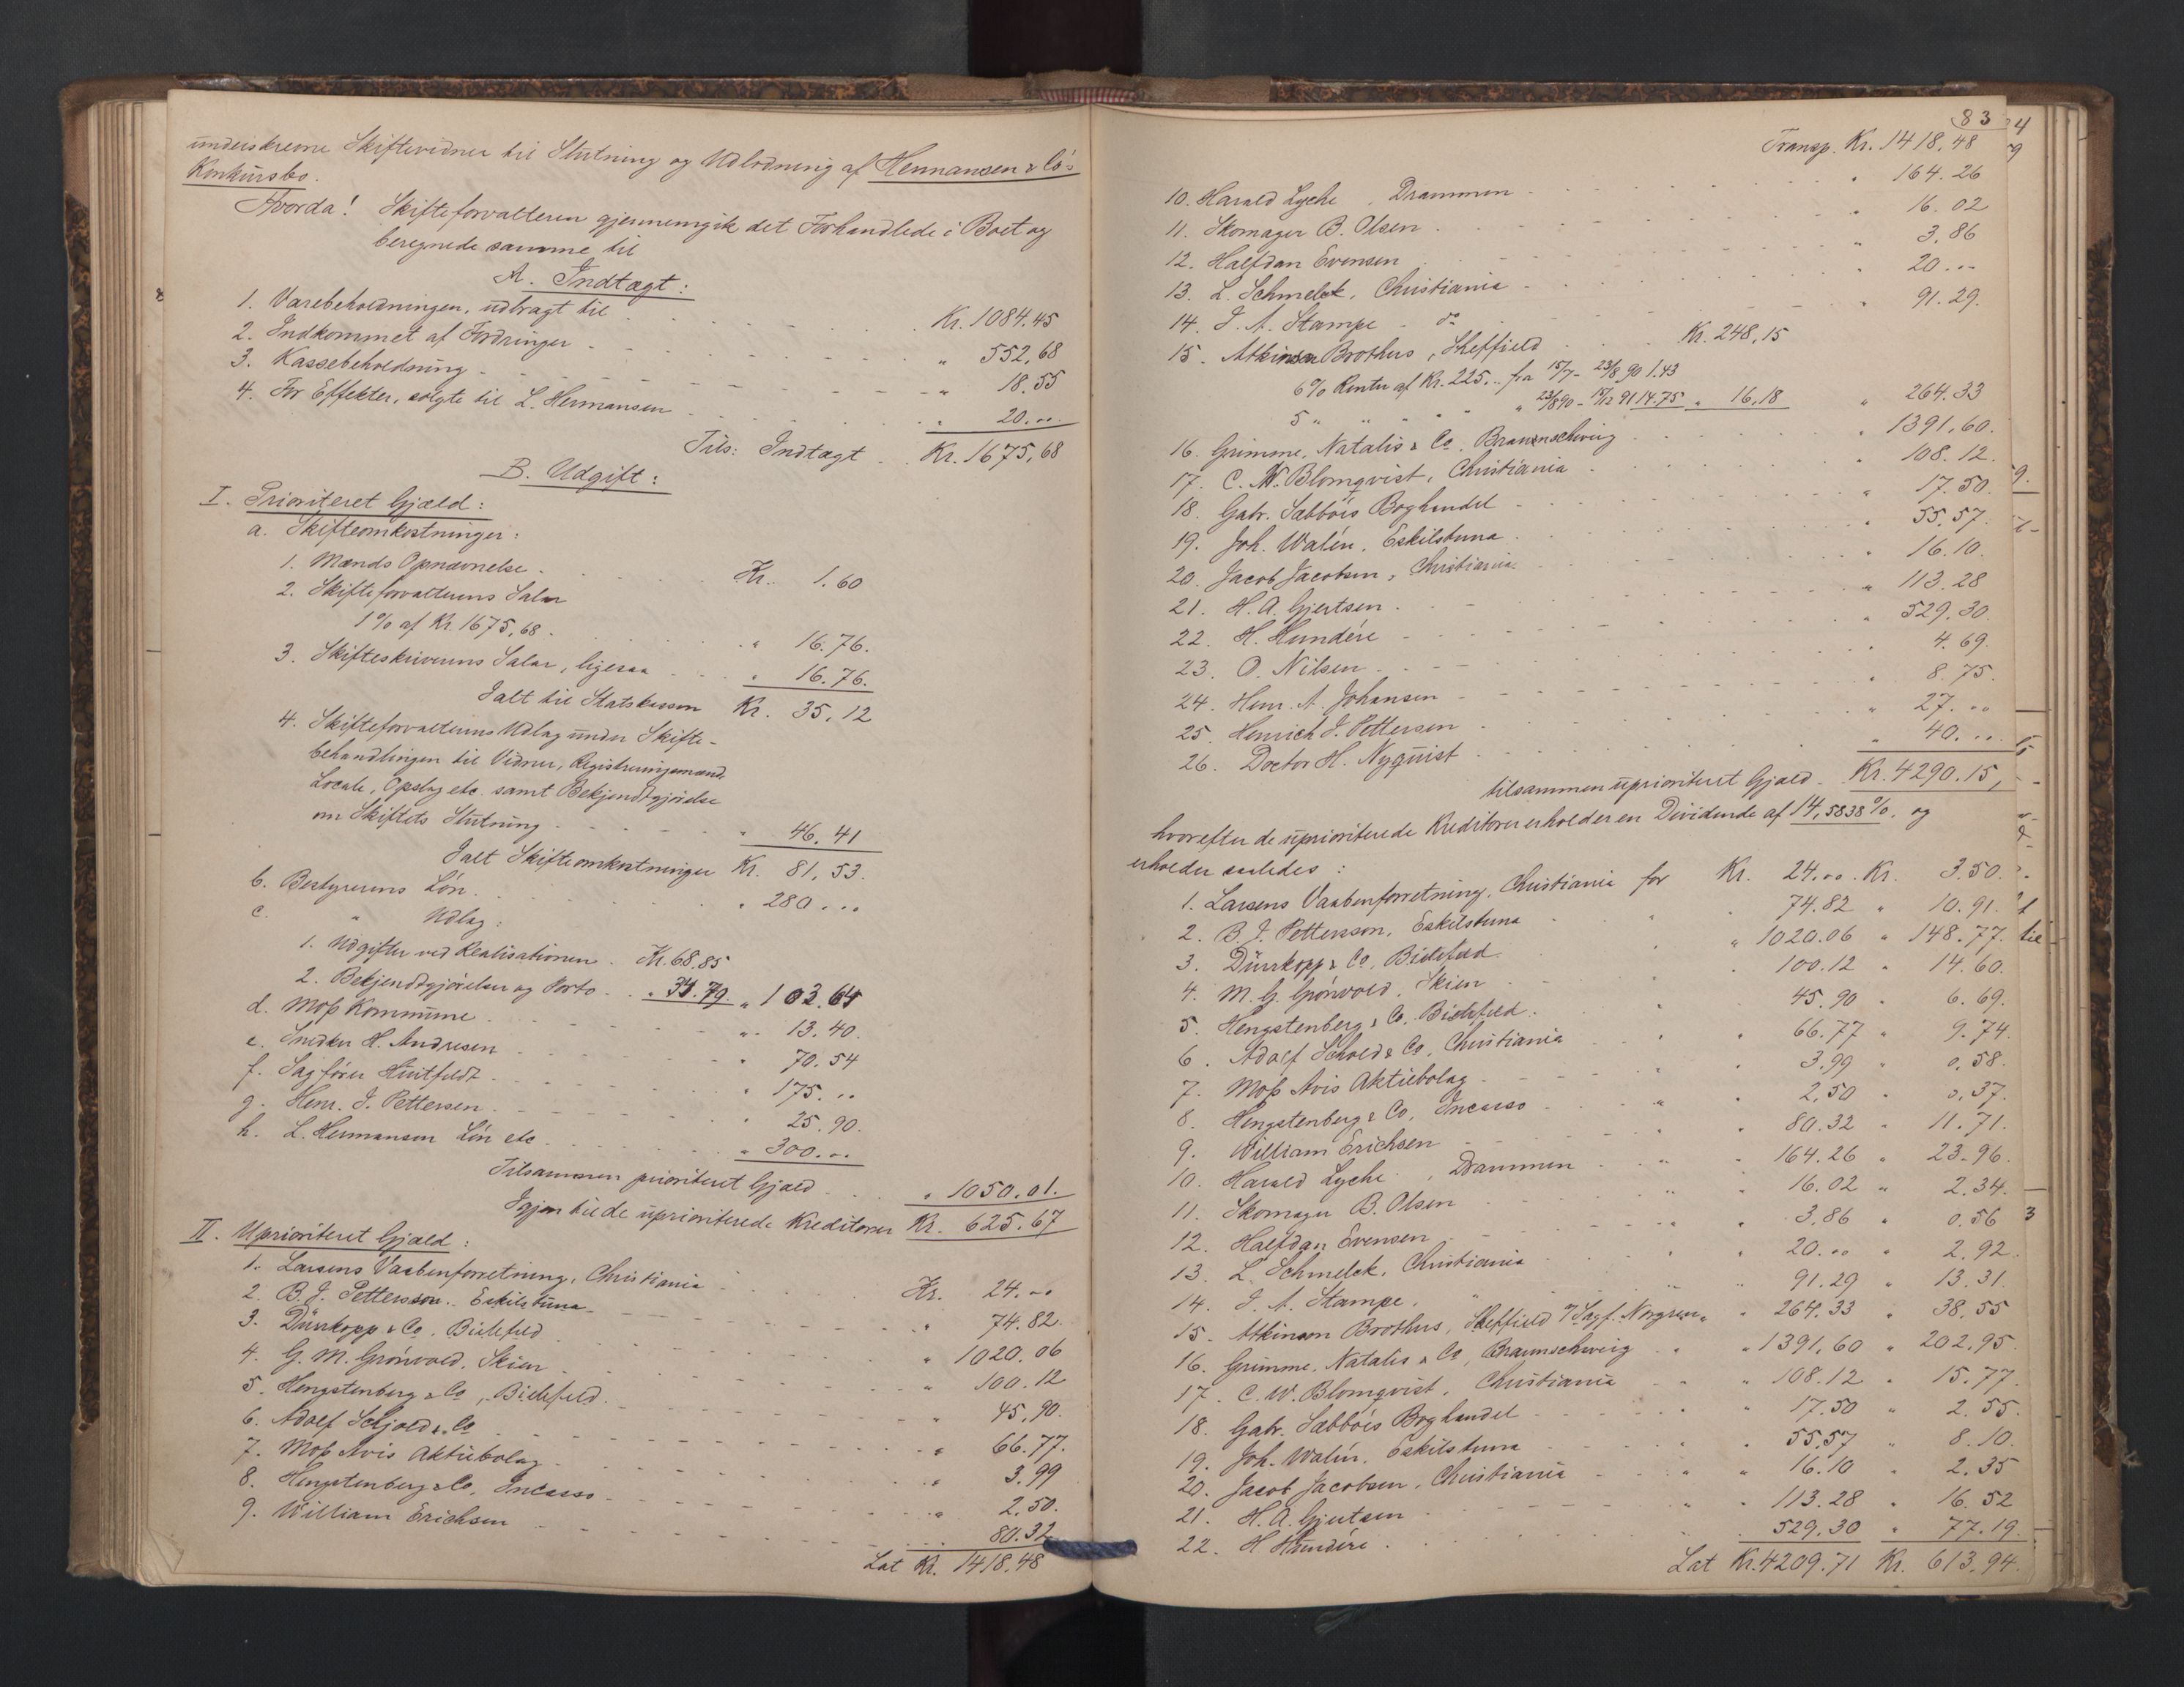 underskrevne Skiftevidner til Slutning og Udlodning af Hermansen & Co's
Konkursbo.
Hvorda! Skifteforvalteren gjennemgik det Forhandlede i Boet og
beregnede samme til
A. Indtægt:
1. Varebeholdningen, udbragt til Kr. 1084.45
2. Indkommet af Fordringer " 552,68
3. Kassebeholdning " 18.55
4. For Effekter, solgte til L. Hermansen " 20...
Tils: Indtægt Kr. 1675,68
B. Udgift:
I. Prioriteret Gjæld:
a. Skifteomkostninger:
1. Mænds Opnævnelse Kr. 1.60
2. Skifteforvalterens Salær
1% af Kr. 1675,68 " 16.76.
3. Skifteskriverens Salær, ligesaa " 16.76.
Ialt til Statskassen Kr. 35,12
4. Skifteforvalterens Udlæg under Skifte-
behandlingen til Vidner, Registreringsmænd,
Locale, Opslag etc. samt Bekjendtgjørelse
om Skiftets Slutning " 46.41
Ialt Skifteomkostninger Kr. 81,53.
b. Bestyrerens Løn " 280...
c. " Udlæg:
1. Udgifter ved Realisationen Kr. 68,85
2. Bekjendtgjørelser og Porto " 34.79. " 103.64
d. Moss Kommune " 13.40.
e. Snedker H. Andresen " 70.54
f. Sagfører Huitfeldt " 175...
g. Henr. J. Pettersen " 25.90.
h. L. Hermansen Løn etc " 300...
Tilsammen prioriteret Gjæld " 1050.01.
Igjen til de uprioriterede Kreditorer Kr. 625.67
II. Uprioriteret Gjæld:
1. Larsens Vaabenforretning, Christiania Kr. 24...
2. B. J. Pettersson, Eskilstuna " 74.82.
3. Dürrkopp & Co, Bielefeld " 1020.06
4. G. M. Grönvold, Skien " 100.12
5. Hengstenberg & Co, Bielefeld " 45,90.
6. Adolf Schjold & Co " 66.77.
7. Moss Avis Aktiebolag " 3.99
8. Hengstenberg & Co, Incasso " 2.50.
9. William Erichsen " 80.32
Lat Kr. 1418.48
83
Transp. Kr. 1418,48
10. Harald Lyche, Drammen " 164.26
11. Skomager B. Olsen " 16.02
12. Halfdan Evensen " 3,86
13. L. Schmelck, Christiania " 20...
14. J. A. Stampe - do " 91.29.
15. Atkinson Brothers, Sheffield Kr. 248,15
6% Renter af Kr. 225,.. fra 15/7 - 23/8 90 1.43
5 " " " " 23/8 90 - 15/12 91 14.75 " 16,18 " 264.33
16. Grimme, Natalis & Co, Braunschweig " 1391,60.
17. C. W. Blomqvist, Christiania " 108.12.
18. Gabr. Sæbbøis Boghandel " 17.50.
19. Joh. Walén, Eskilstuna " 55,57.
20. Jacob Jacobsen, Christiania " 16.10.
21. H. A. Gjertsen " 113.28
22. H. Hundére " 529,30.
23. O. Nilsen " 4.69.
24. Henr. A. Johansen " 8.75.
25. Henrich J. Pettersen " 27...
26. Doctor H. Nyquist " 40...
tilsammen uprioriteret Gjæld Kr. 4290.15,
hvorefter de uprioriterede Kreditorer erholder en Dividende af 14,5838%, og
erholder saaledes:
1. Larsens Vaabenforretning, Christiania for Kr. 24... Kr. 3.50.
2. B. J. Pettersson, Eskilstuna " 74.82 " 10.91.
3. Dürrkopp & Co, Bielefeld " 1020.06 " 148.77.
4. M. G. Grönvold, Skien " 100.12 " 14.60.
5. Hengstenberg & Co, Bielefeld " 45.90 " 6.69.
6. Adolf Schold & Co, Christiania " 66.77 " 9.74.
7. Moss Avis Aktiebolag " 3.99 " 0.58.
8. Hengstenberg & Co, Incasso " 2,50 " 0,37.
9. William Erichsen " 80.32 " 11.71.
10. Harald Lyche, Drammen " 164.26 " 23.96.
11. Skomager B. Olsen " 16.02 " 2.34.
12. Halfdan Evensen " 3,86 " 0.56
13. L. Schmelck, Christiania " 20... " 2.92.
14. J. A. Stampe, " " 91.29 " 13.31.
15. Atkinson Brothers, Sheffield v/ Sagf. Norgren " 264.33 " 38,55
16. Grimme, Natalis & Co, Braunschweig " 1391,60 " 202,95.
17. C. W. Blomqvist, Christiania " 108.12 " 15.77.
18. Gabr. Sæbbøis Boghandel " 17.50 " 2.55.
19. Joh. Walén, Eskilstuna " 55.57 " 8.10.
20. Jacob Jacobsen, Christiania " 16.10 " 2.35
21. H. A. Gjertsen " 113.28 " 16.52
22. H Hundére " 529,30 " 77.19.
Lat Kr. 4209.71 Kr. 613,94.